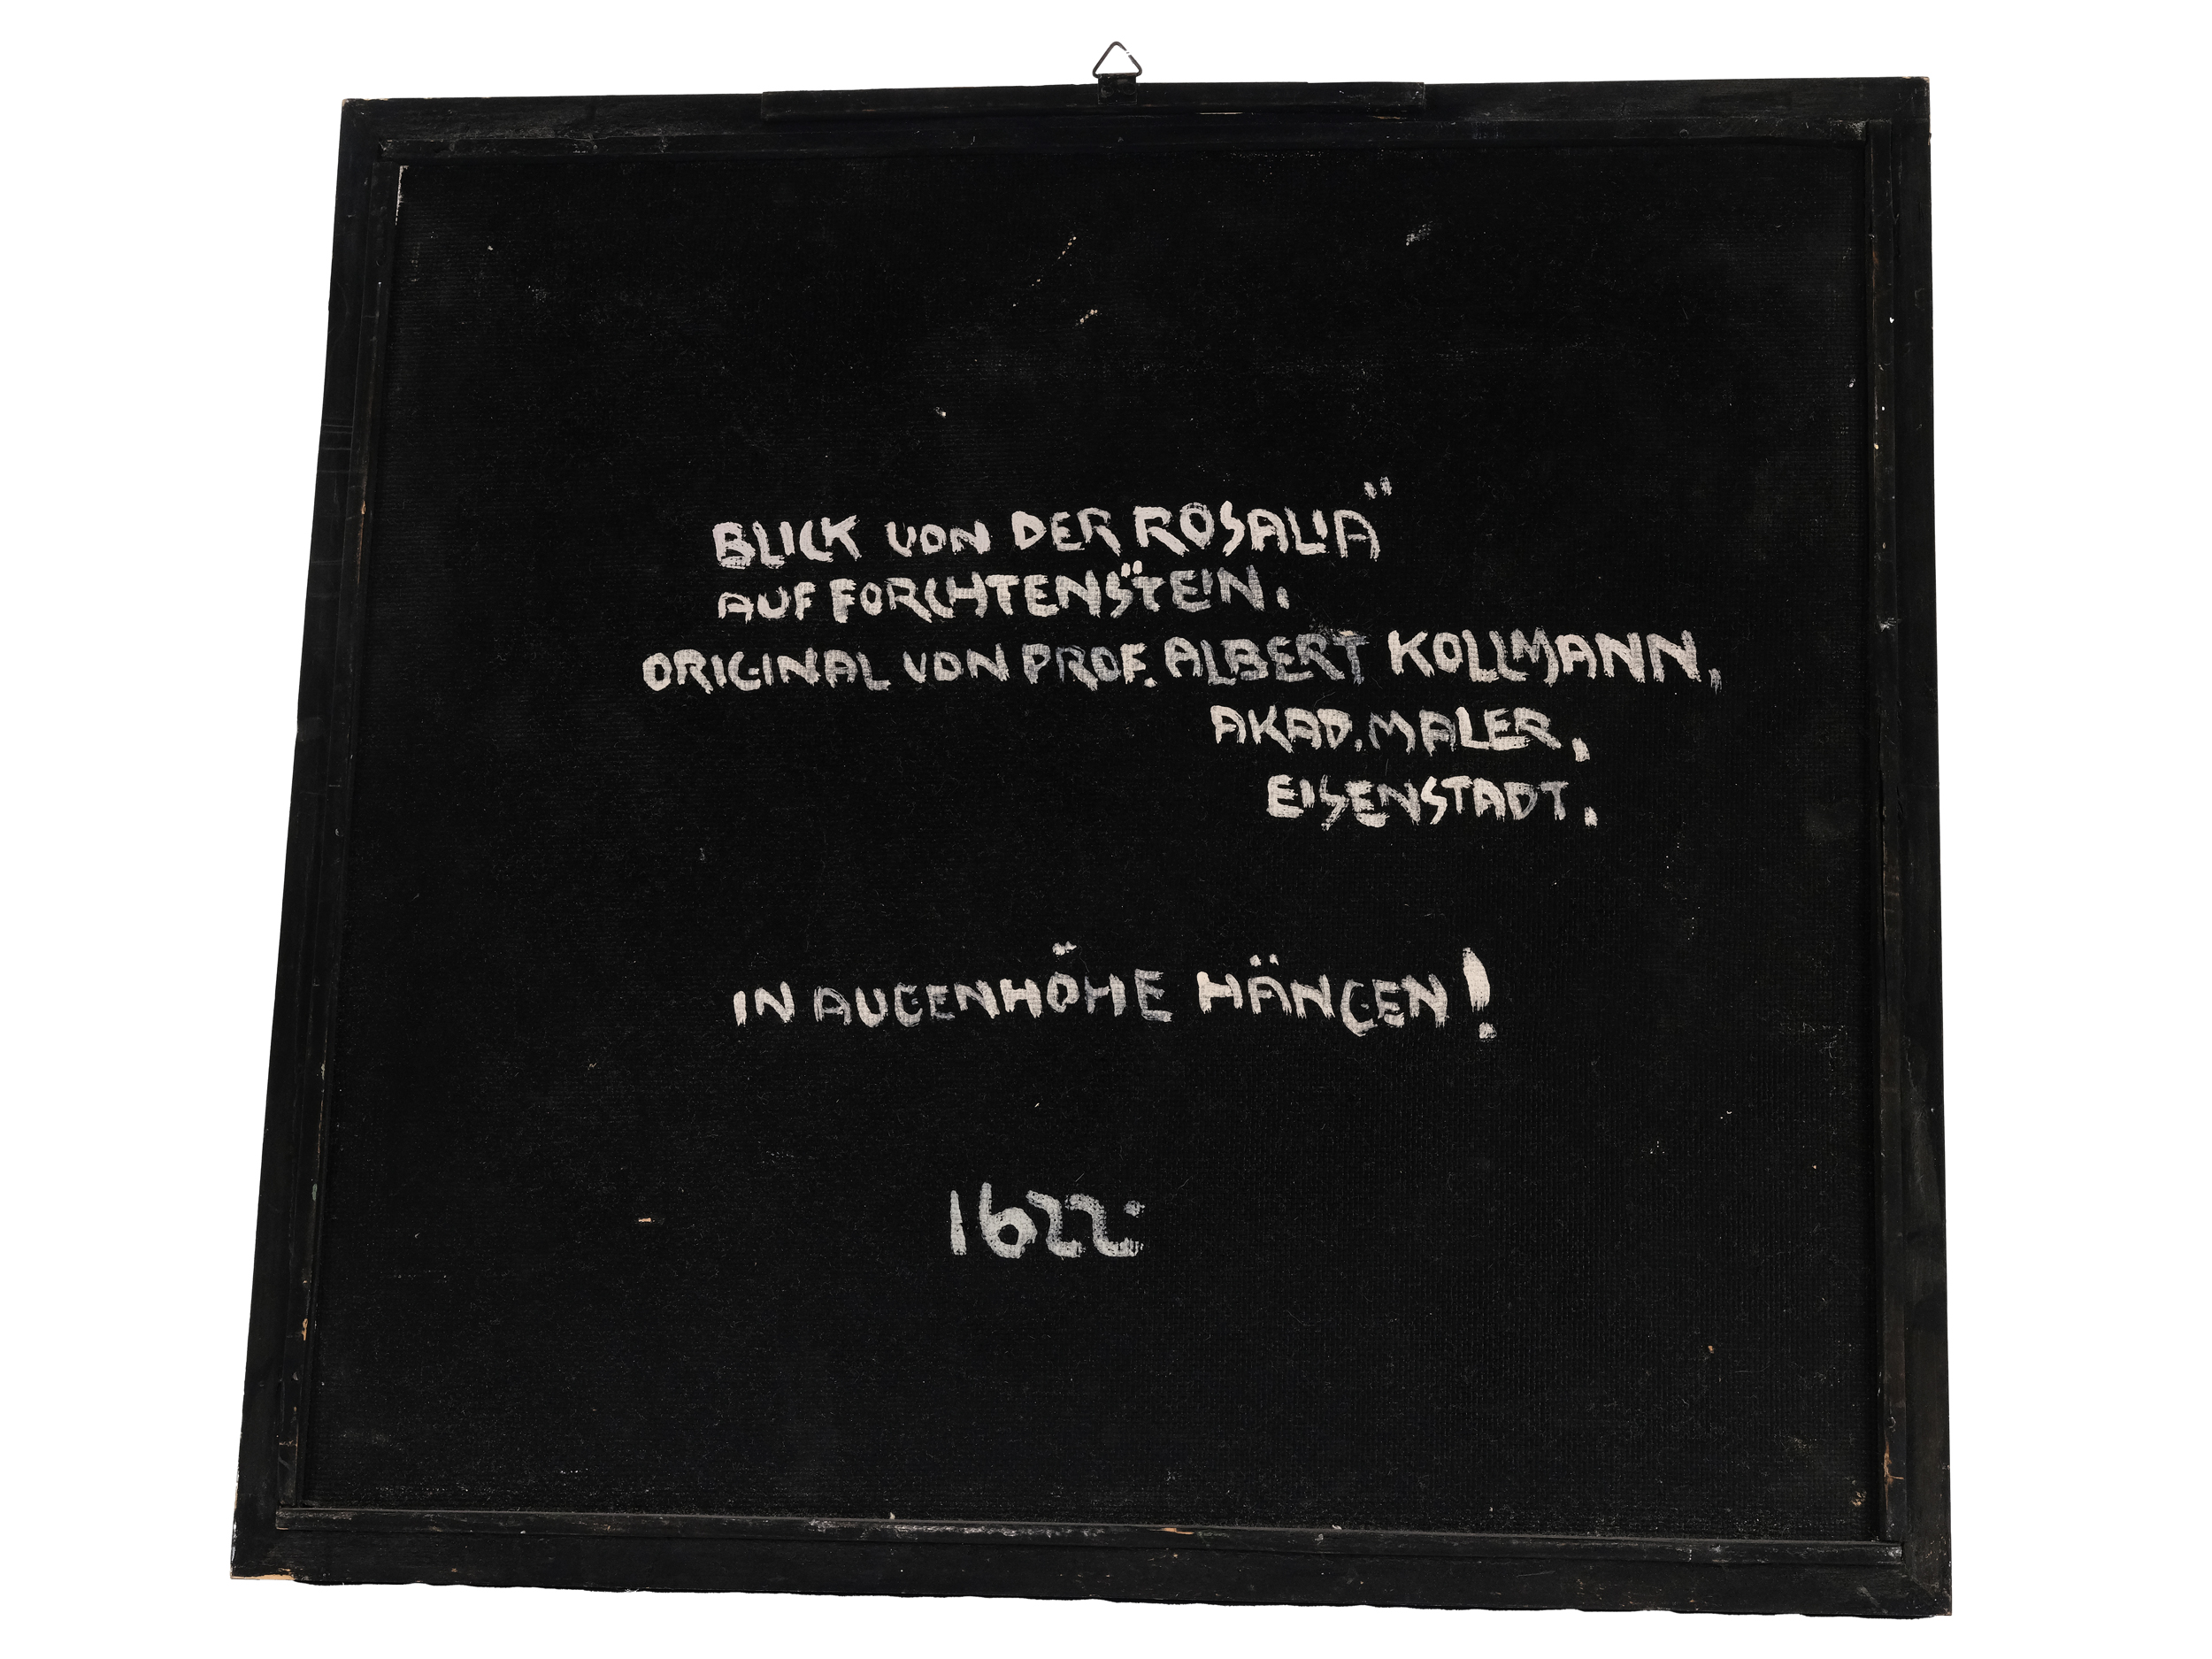 BLICK VON DER ROSALIA"
AUF FORCHTENSTEIN.
ORIGINAL VON PROF. ALBERT KOLLMANN,
AKAD. MALER,
EISENSTADT.
IN AUGENHÖHE HÄNGEN!
1622: